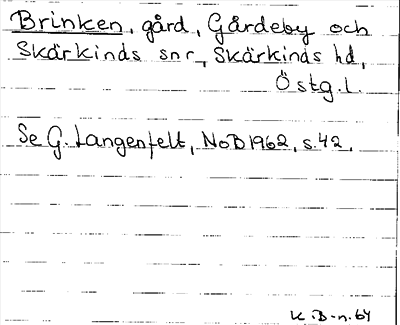 Brinken, gård, Gårdeby och
Skärkinds snr, Skärkinds hd,
Östg.l.
Se G. Langenfelt, NoB 1962, s. 42.
K.B-n. 64